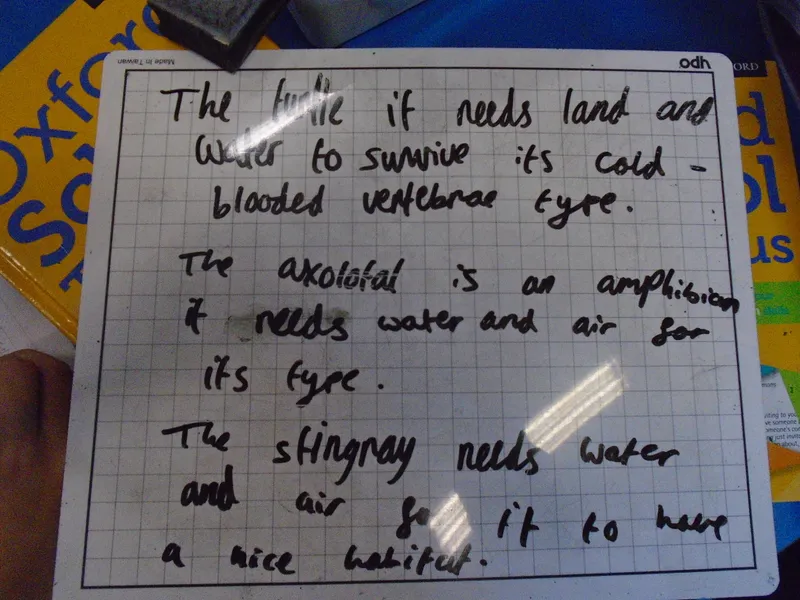 Made in Taiwan
odh
Oxford
ORD
The turtle it needs land and
water to survive its cold -
blooded vertebrae type.
The axolotal is an amphibian
it needs water and air for
its type.
The stingray needs water
and air for it to have
a nice habitat.